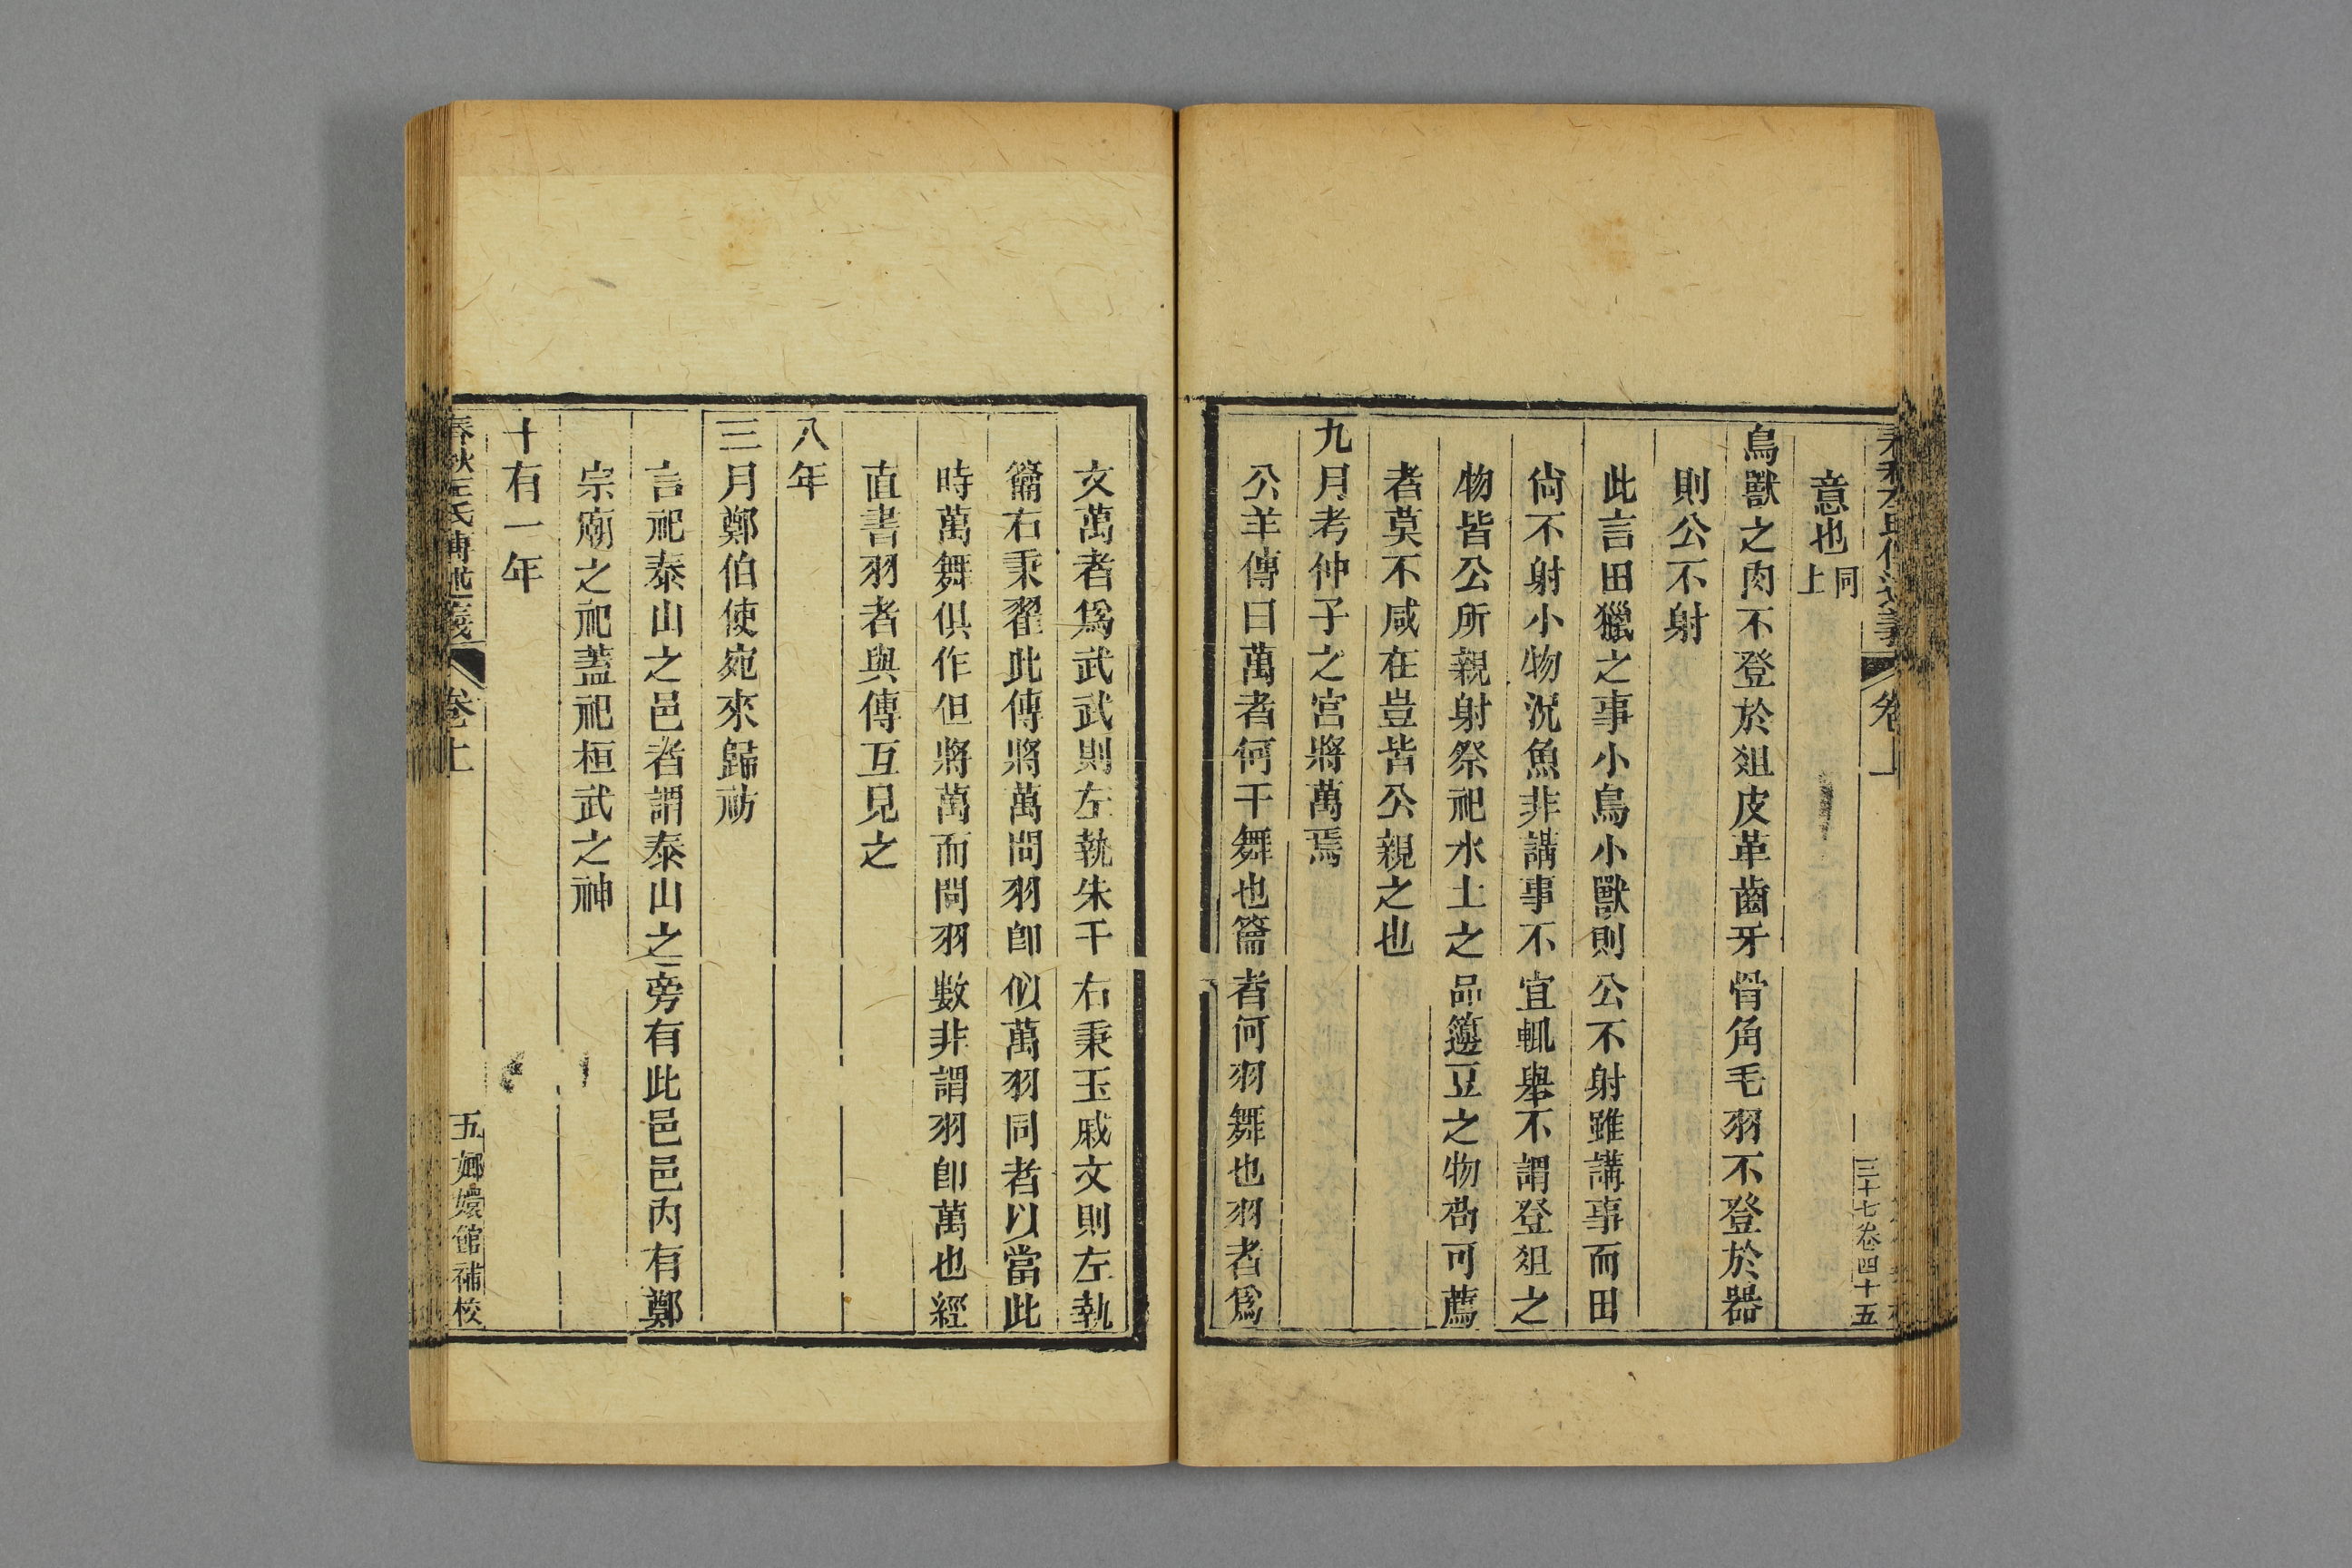 意也同上
鳥獸之肉不登於俎皮革齒牙骨角毛羽不登於器
則公不射
此言田獵之事小鳥小獸則公不射雖講事而田
尙不射小物況魚非講事不宜輒舉不謂登俎之
物皆公所親射祭祀水土之品籩豆之物苟可薦
者莫不咸在豈皆公親之也
九月考仲子之宮將萬焉
公羊傳曰萬者何干舞也籥者何羽舞也羽者爲
三十七卷四十五
文萬者爲武武則左執朱干右秉玉戚文則左執
籥右秉翟此傳將萬問羽卽似萬羽同者以當此
時萬舞俱作但將萬而問羽數非謂羽卽萬也經
直書羽者與傳互見之
八年
三月鄭伯使宛來歸祊
言祀泰山之邑者謂泰山之旁有此邑邑內有鄭
宗廟之祀蓋祀桓武之神
十有一年
春秋左氏傳述義 卷上 五 嫏嬛館補校